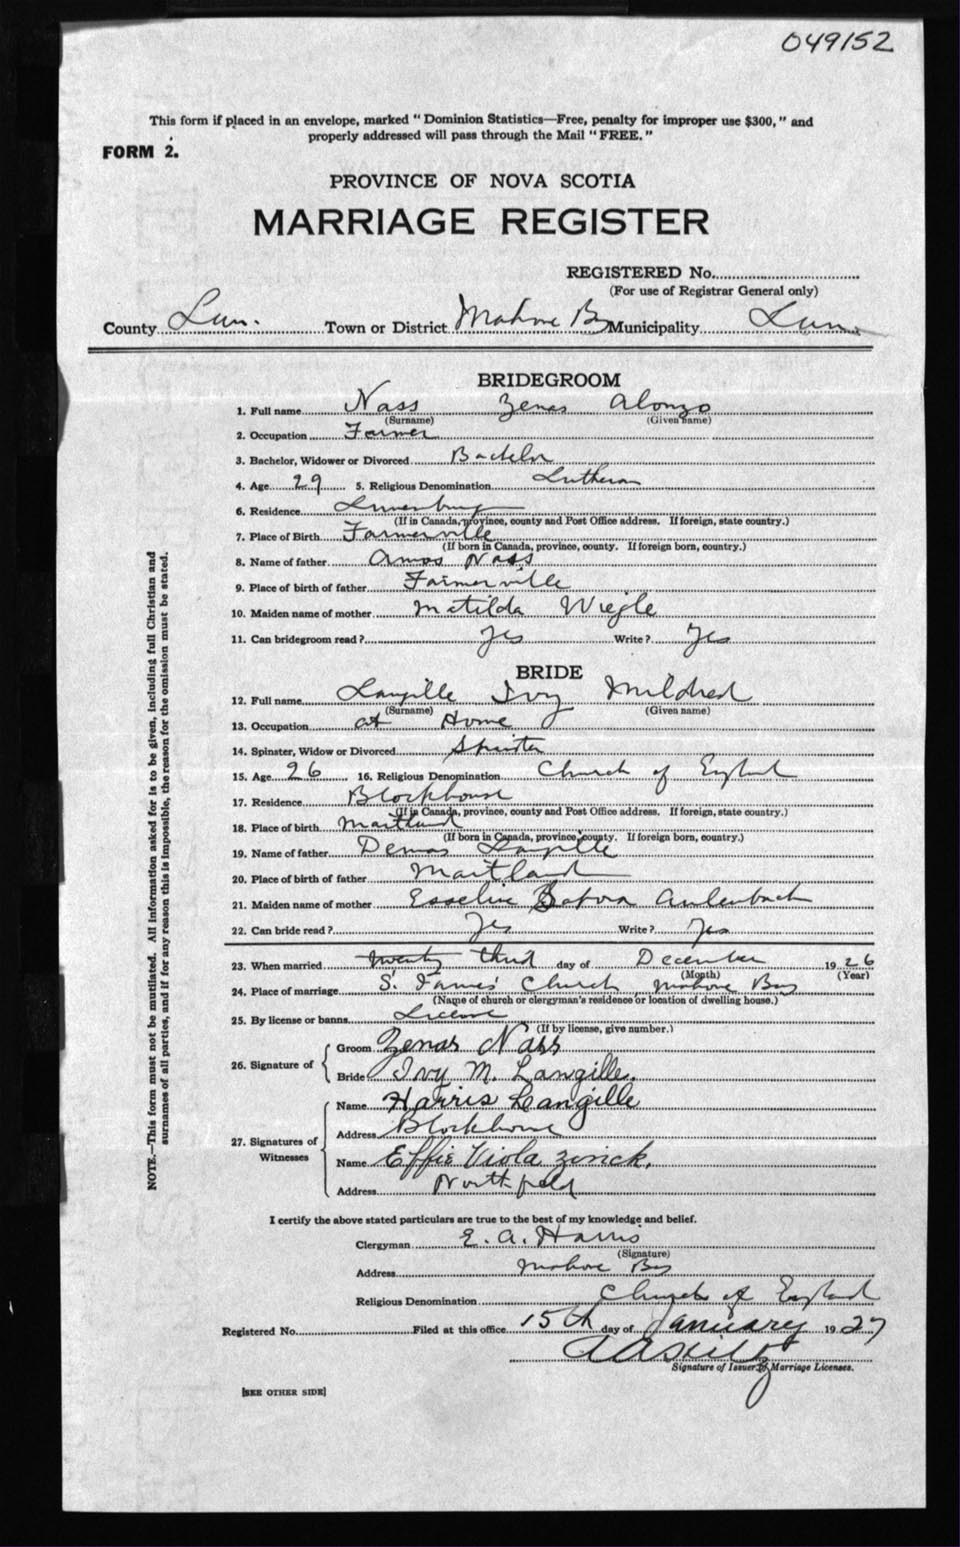 049152
This form if placed in an envelope, marked "Dominion Statistics—Free, penalty for improper use $300," and
properly addressed will pass through the Mail "FREE."
FORM 2.
PROVINCE OF NOVA SCOTIA
MARRIAGE REGISTER
REGISTERED No.
(For use of Registrar General only)
County Lun. Town or District Mahone B Municipality Lun.
BRIDEGROOM
1. Full name Nass Zenas Alonzo
(Surname) (Given name)
2. Occupation Farmer
3. Bachelor, Widower or Divorced Bachelor
4. Age 29 5. Religious Denomination Lutheran
6. Residence Lunenburg
(If in Canada, province, county and Post Office address. If foreign, state country.)
7. Place of Birth Farmerville
(If born in Canada, province, county. If foreign born, country.)
8. Name of father Amos Nass
9. Place of birth of father Farmerville
10. Maiden name of mother Matilda Wiegle
11. Can bridegroom read? Yes Write? Yes
BRIDE
12. Full name Langille Ivy Mildred
(Surname) (Given name)
13. Occupation at Home
14. Spinster, Widow or Divorced Spinster
15. Age 26 16. Religious Denomination Church of England
17. Residence Blockhouse
(If in Canada, province, county and Post Office address. If foreign, state country.)
18. Place of birth Maitland
(If born in Canada, province, county. If foreign born, country.)
19. Name of father Demas Langille
20. Place of birth of father Maitland
21. Maiden name of mother Esseline Aulenbach
22. Can bride read? Yes Write? Yes
23. When married twenty third day of December 1926
(Month) (Year)
24. Place of marriage S. James' Church Mahone Bay
(Name of church or clergyman's residence or location of dwelling house.)
25. By license or banns License
(If by license, give number.)
26. Signature of
Groom Zenas Nass
Bride Ivy M. Langille.
27. Signatures of
Witnesses
Name Harris Langille
Address Blockhouse
Name Effie Viola Zinck.
Address Northfield
I certify the above stated particulars are true to the best of my knowledge and belief.
Clergyman E. A. Harris
(Signature)
Address Mahone Bay
Religious Denomination Church of England
Registered No. Filed at this office 15th day of January 1927
Signature of Issuer of Marriage Licenses.
[SEE OTHER SIDE]
NOTE.—This form must not be mutilated. All information asked for is to be given, including full Christian and
surnames of all parties, and if for any reason this is impossible, the reason for the omission must be stated.